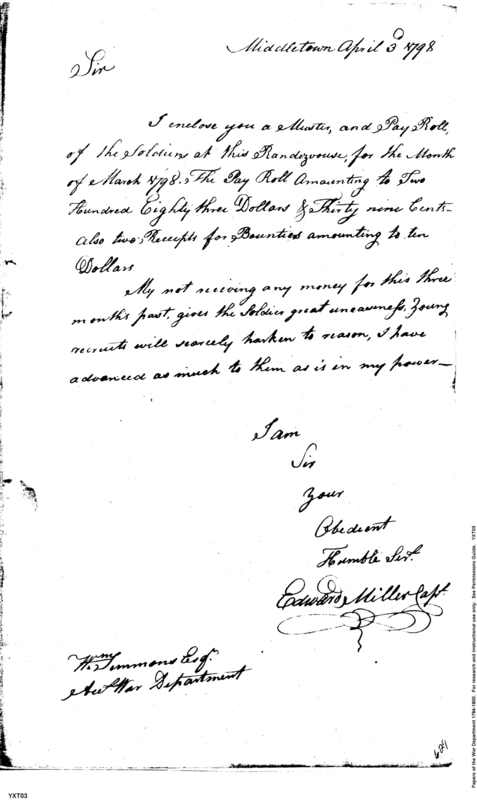 Middletown April 3d 1798
Sir
I enclose you a Muster, and Pay Roll,
of the Soldiers at this Randezvouse, for the Month
of March 1798. The Pay Roll Amounting to Two
Hundred Eighty three Dollars & Thirty nine Cents-
Also two Receipts for Bounties amounting to ten
Dollars
My not reciving any money for this three
months past, gives the Soldier great uneasiness, Young
recruits will scarcely harken to reason, I have
advanced as much to them as is in my power—
I am
Sir
Your
Obedient
Humble Sirt.
Edward Miller Capt.
Wm Simmons Esqr.
Acct War Department
629
YXT03
Papers of the War Department 1784-1800. For research and instructional use only. See Permissions Guide. YXT03